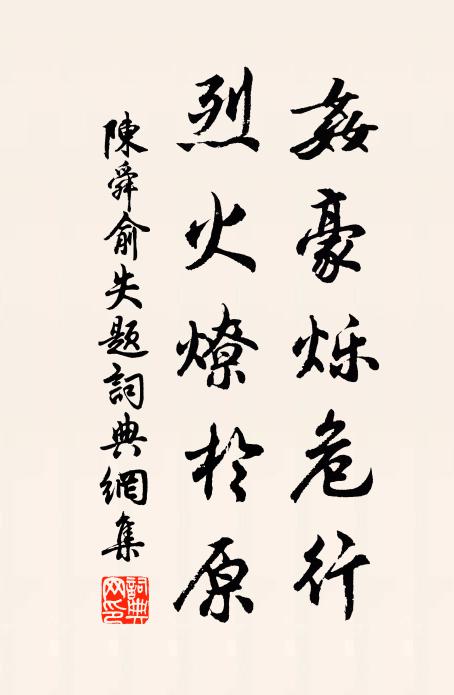 姦豪烁危行
烈火燎於原
陳舜俞失题詞典網集
詞典网印